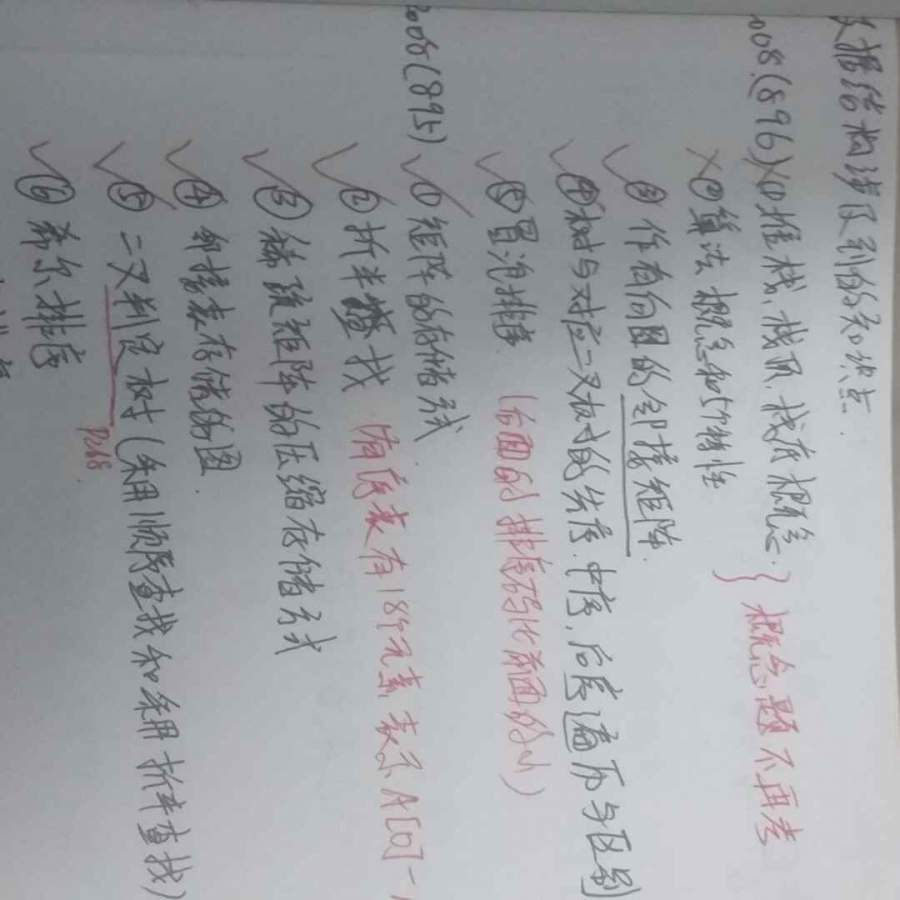 数据结构涉及到的知识点.
2008(896) ①堆栈、栈顶、栈底概念. } 概念题不再考
②算法概念和5个特性
③作有向图的邻接矩阵.
④树与对应二叉树的先序.中序,后序遍历与区别
⑤冒泡排序 (后面的排序码比前面的小)
2008(895) ①矩阵的存储方式.
②折半查找 有序表有18个元素 表示A[0]-
③稀疏矩阵的压缩存储方式
④邻接表存储的图.
⑤二叉判定树(采用顺序查找和采用折半查找)
P268.
⑥希尔排序